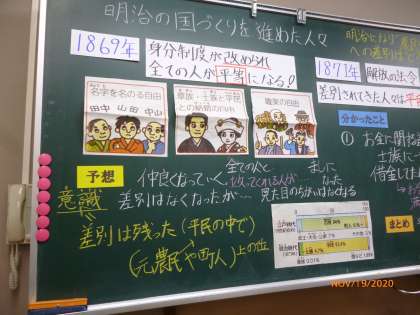 明治の国づくりを進めた人々
1869年
身分制度が改められ
全ての人が平等になる!
名字を名のる自由
田中 山田 中山
華族・士族と平民
との結婚の自由
職業の自由
予想
仲良くなっていく。
全ての人と
差別はなくなったが…
見た目のちがいはなくなる
意識
差別は残った(平民の中で)
(元農民や町人)上の位
明治
への差別は
1871年
解放の法令
差別されてきた人々は平
分かったこと
① お金に関
士族に
借金した
まとめ
NOV/19/2020